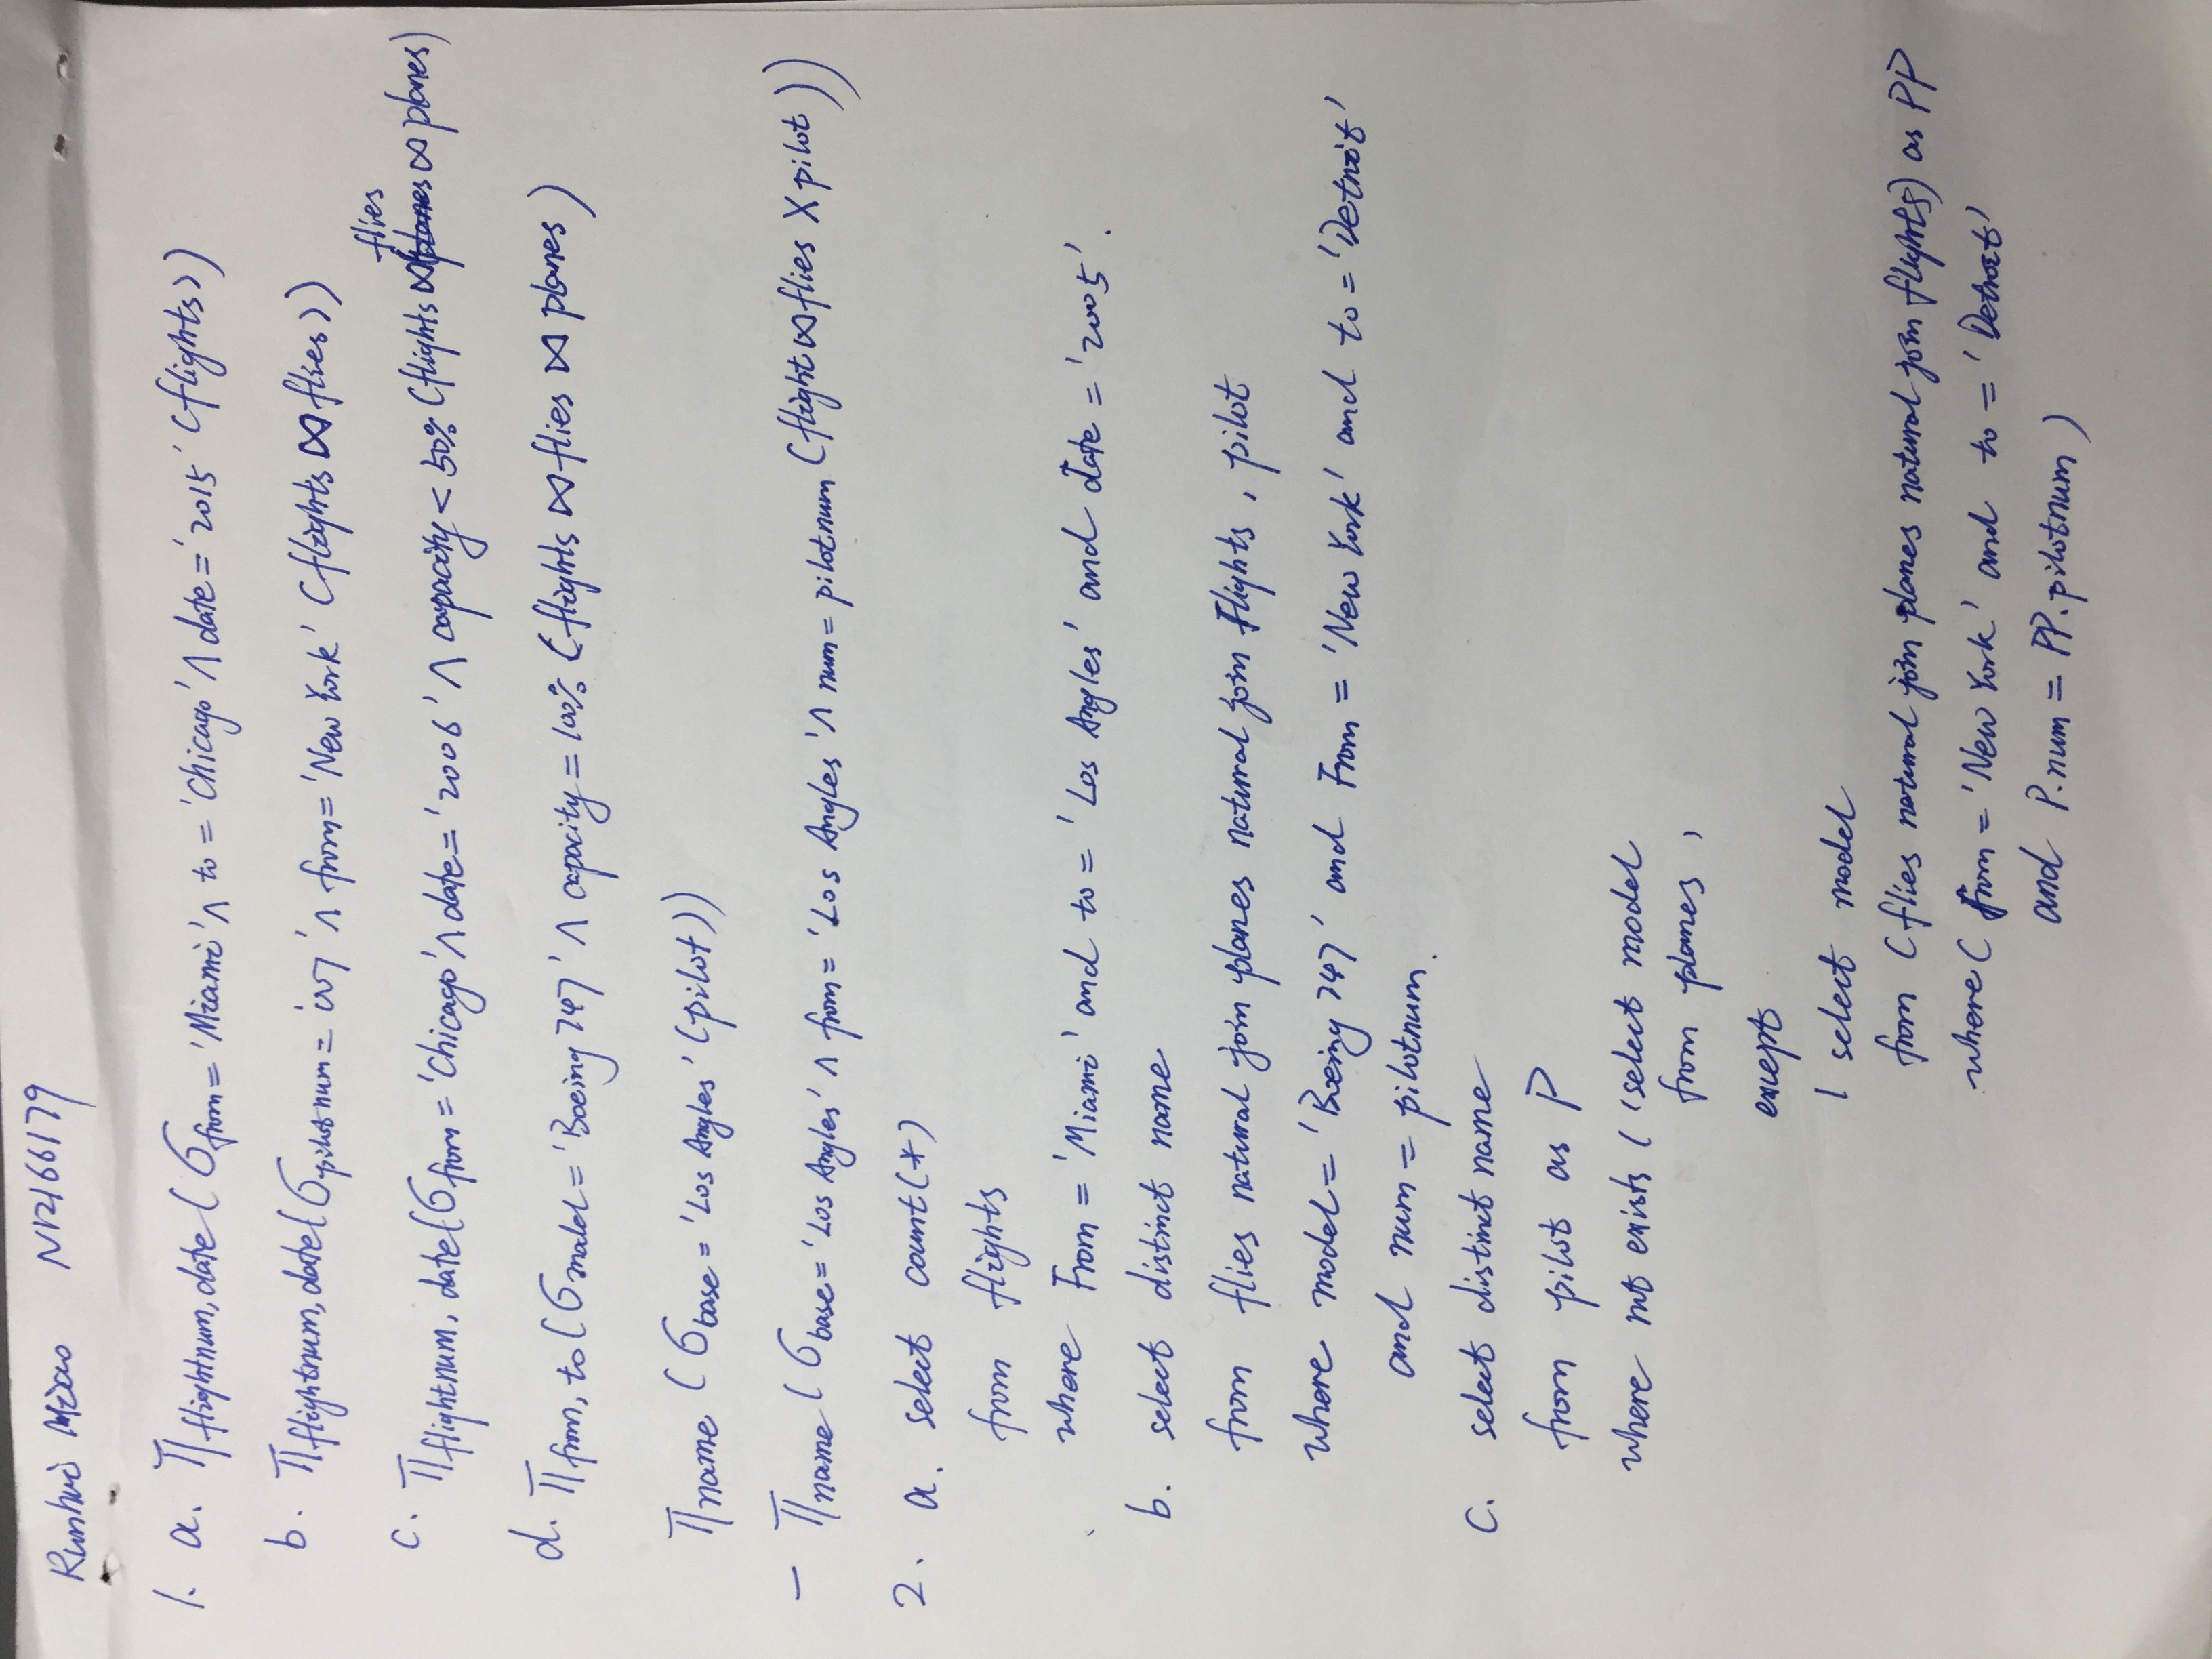 Runhui Miao N12166179
1. a. Π flightnum, date (σ from = 'Miami' ∧ to = 'Chicago' ∧ date = '2015' (flights))
b. Π flightnum, date (σ pilotnum = '007' ∧ from = 'New York' (flights ⋈ flies))
c. Π flightnum, date (σ from = 'Chicago' ∧ date = '2006' ∧ capacity < 50% (flights ⋈ flies ⋈ planes)
d. Π from, to (σ model = 'Boeing 747' ∧ capacity = 100% (flights ⋈ flies ⋈ planes)
Π name (σ base = 'Los Angles' (pilot))
− Π name (σ base = 'Los Angles' ∧ from = 'Los Angles' ∧ num = pilotnum (flight ⋈ flies X pilot))
2. a. select count(*)
from flights
where from = 'Miami' and to = 'Los Angles' and date = '2005'.
b. select distinct name
from flies natural join planes natural join flights, pilot
where model = 'Boeing 747' and from = 'New York' and to = 'Detroit'
and num = pilotnum.
c. select distinct name
from pilot as P
where not exists ( (select model
from planes,
except
( select model
from (flies natural join planes natural join flights) as PP
where ( from = 'New York' and to = 'Detroit'
and P.num = PP.pilotnum )